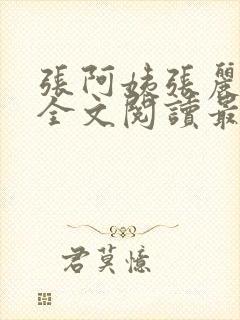 張阿姨張麗
全文閱讀最
君莫憶